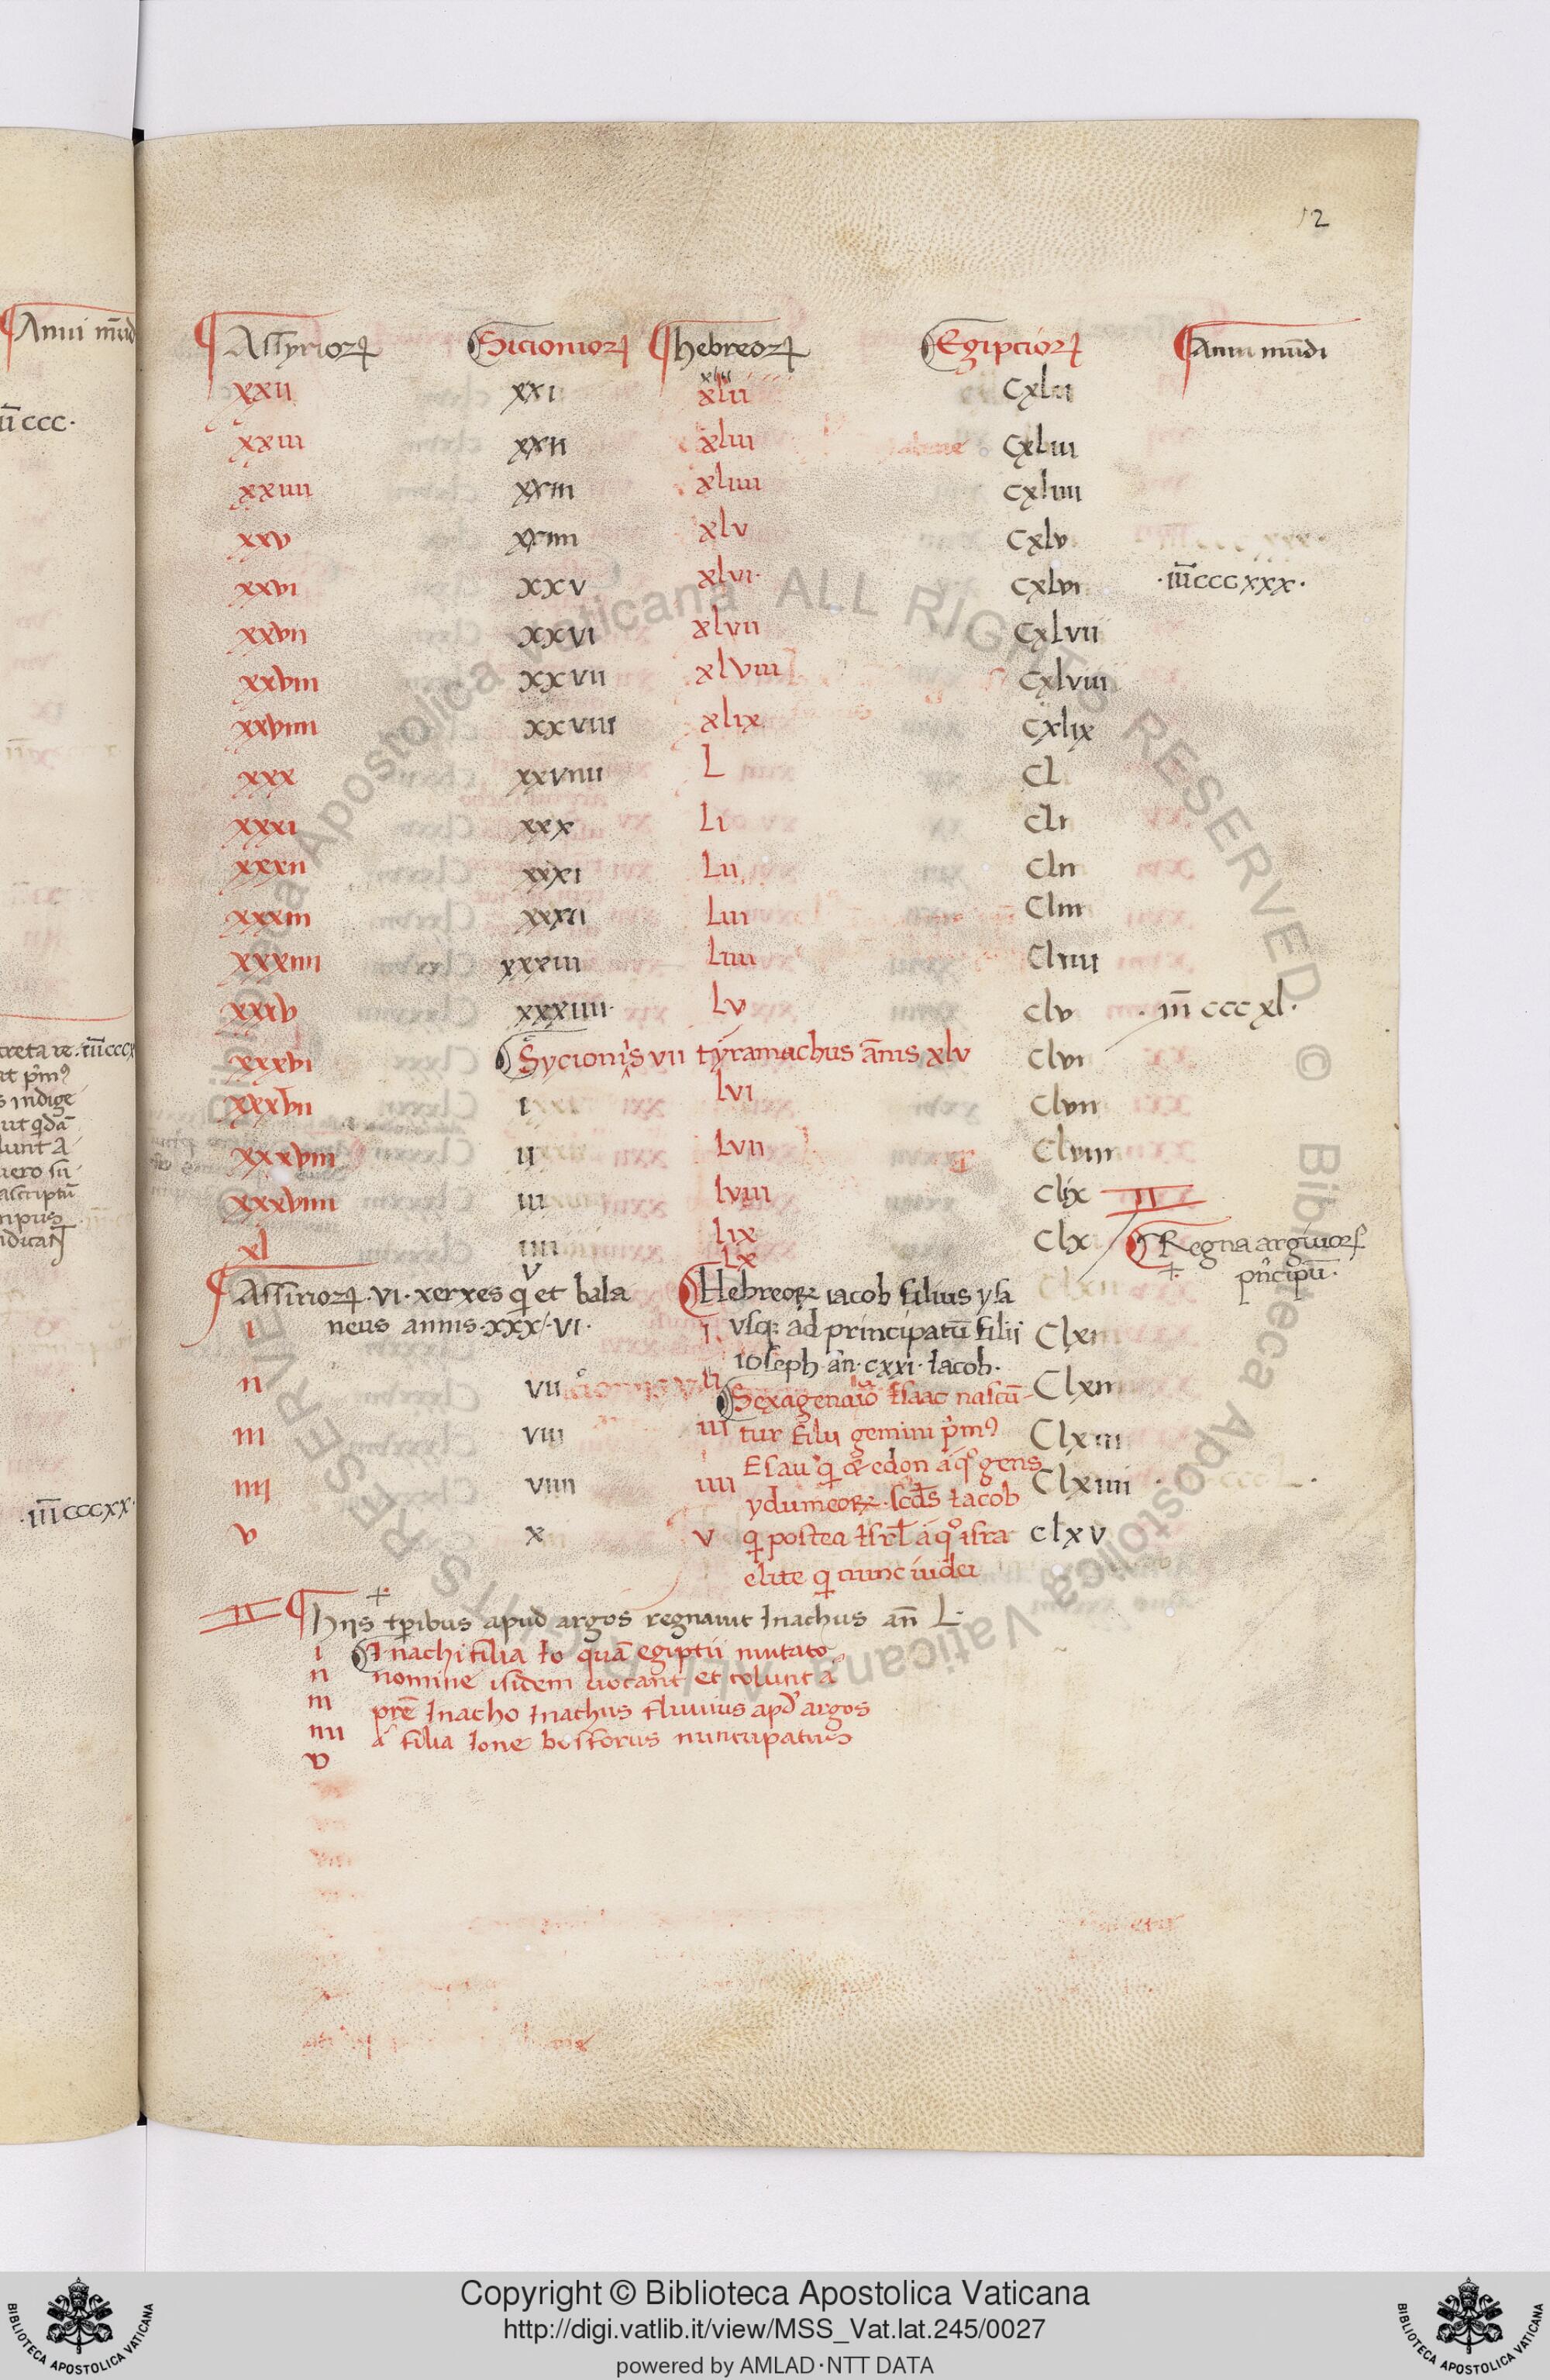 12
Anni mūd
ūccc.
creta re. īīīcccx
at p̄mꝰ
s indige
ut qdā
lunt a
uero sū
ascriptū
npus
.īīīcccxx.
¶Assyrioꝝ Sicionioꝝ ¶hebreoꝝ Egipcioꝝ ¶Anni mūdi
xliii
xxii xxi xlii cxlii
xxiii xxii xliii cxliii
xxiiii xxiii xliiii cxliiii
xxv xxiiii xlv cxlv
xxvi xxv xlvi. cxlvi .īīīcccxxx.
xxvii xxvi xlvii cxlvii
xxviii xxvii xlviii cxlviii
xxviiii xxviii xlix cxlix
xxx xxviiii L cl
xxxi xxx Li cli
xxxii xxxi Lii clii
xxxiii xxxii Liii cliii
xxxiiii xxxiii Liiii cliiii
xxxv xxxiiii. Lv clv . īīī ccc xl.
xxxvi Sycionis vii tyramachus ānis xlv clvi
xxxvii i Lvi clvii
xxxviii ii Lvii clviii
xxxviiii iii Lviii clix II
xl iiii Lix clx Regna argiuorꝝ
v Lx p̄ncipū.
¶Assirioꝝ .vi. xerxes q̄ et bala Hebreoꝝ iacob filius ysa
i neus annis .xxx.vi. i. vsqꝫ ad principatū filii clxi
ioseph an̄. cxxi. Iacob.
ii vii ii Sexagenario Isaac nascū- clxii
iii viii iii tur filii gemini p̄mꝰ clxiii
Esau q̄ & edon a qͦ gens
iiii viiii iiii ydumeoꝝ. scd̄s Iacob clxiiii
v x v q̄ postea Isrl̄ a qͦ isra clxv
elite q̄ nunc iudei
II ¶hijs tp̄ibus apud argos regnauit Inachus an̄ L.
i Inachi filia Io quā egiptii mutato
ii nomine isidem uocant et colunt a
iii pr̄e Inacho Inachus fluuius apd̄ argos
iiii a filia Ione bosforus nuncupatus
v
BIBLIOTECA APOSTOLICA VATICANA
Copyright © Biblioteca Apostolica Vaticana
http://digi.vatlib.it/view/MSS_Vat.lat.245/0027
powered by AMLAD·NTT DATA
BIBLIOTECA APOSTOLICA VATICANA
© Biblioteca Apostolica Vaticana ALL RIGHTS RESERVED © Biblioteca Apostolica Vaticana ALL RIGHTS RESERVED